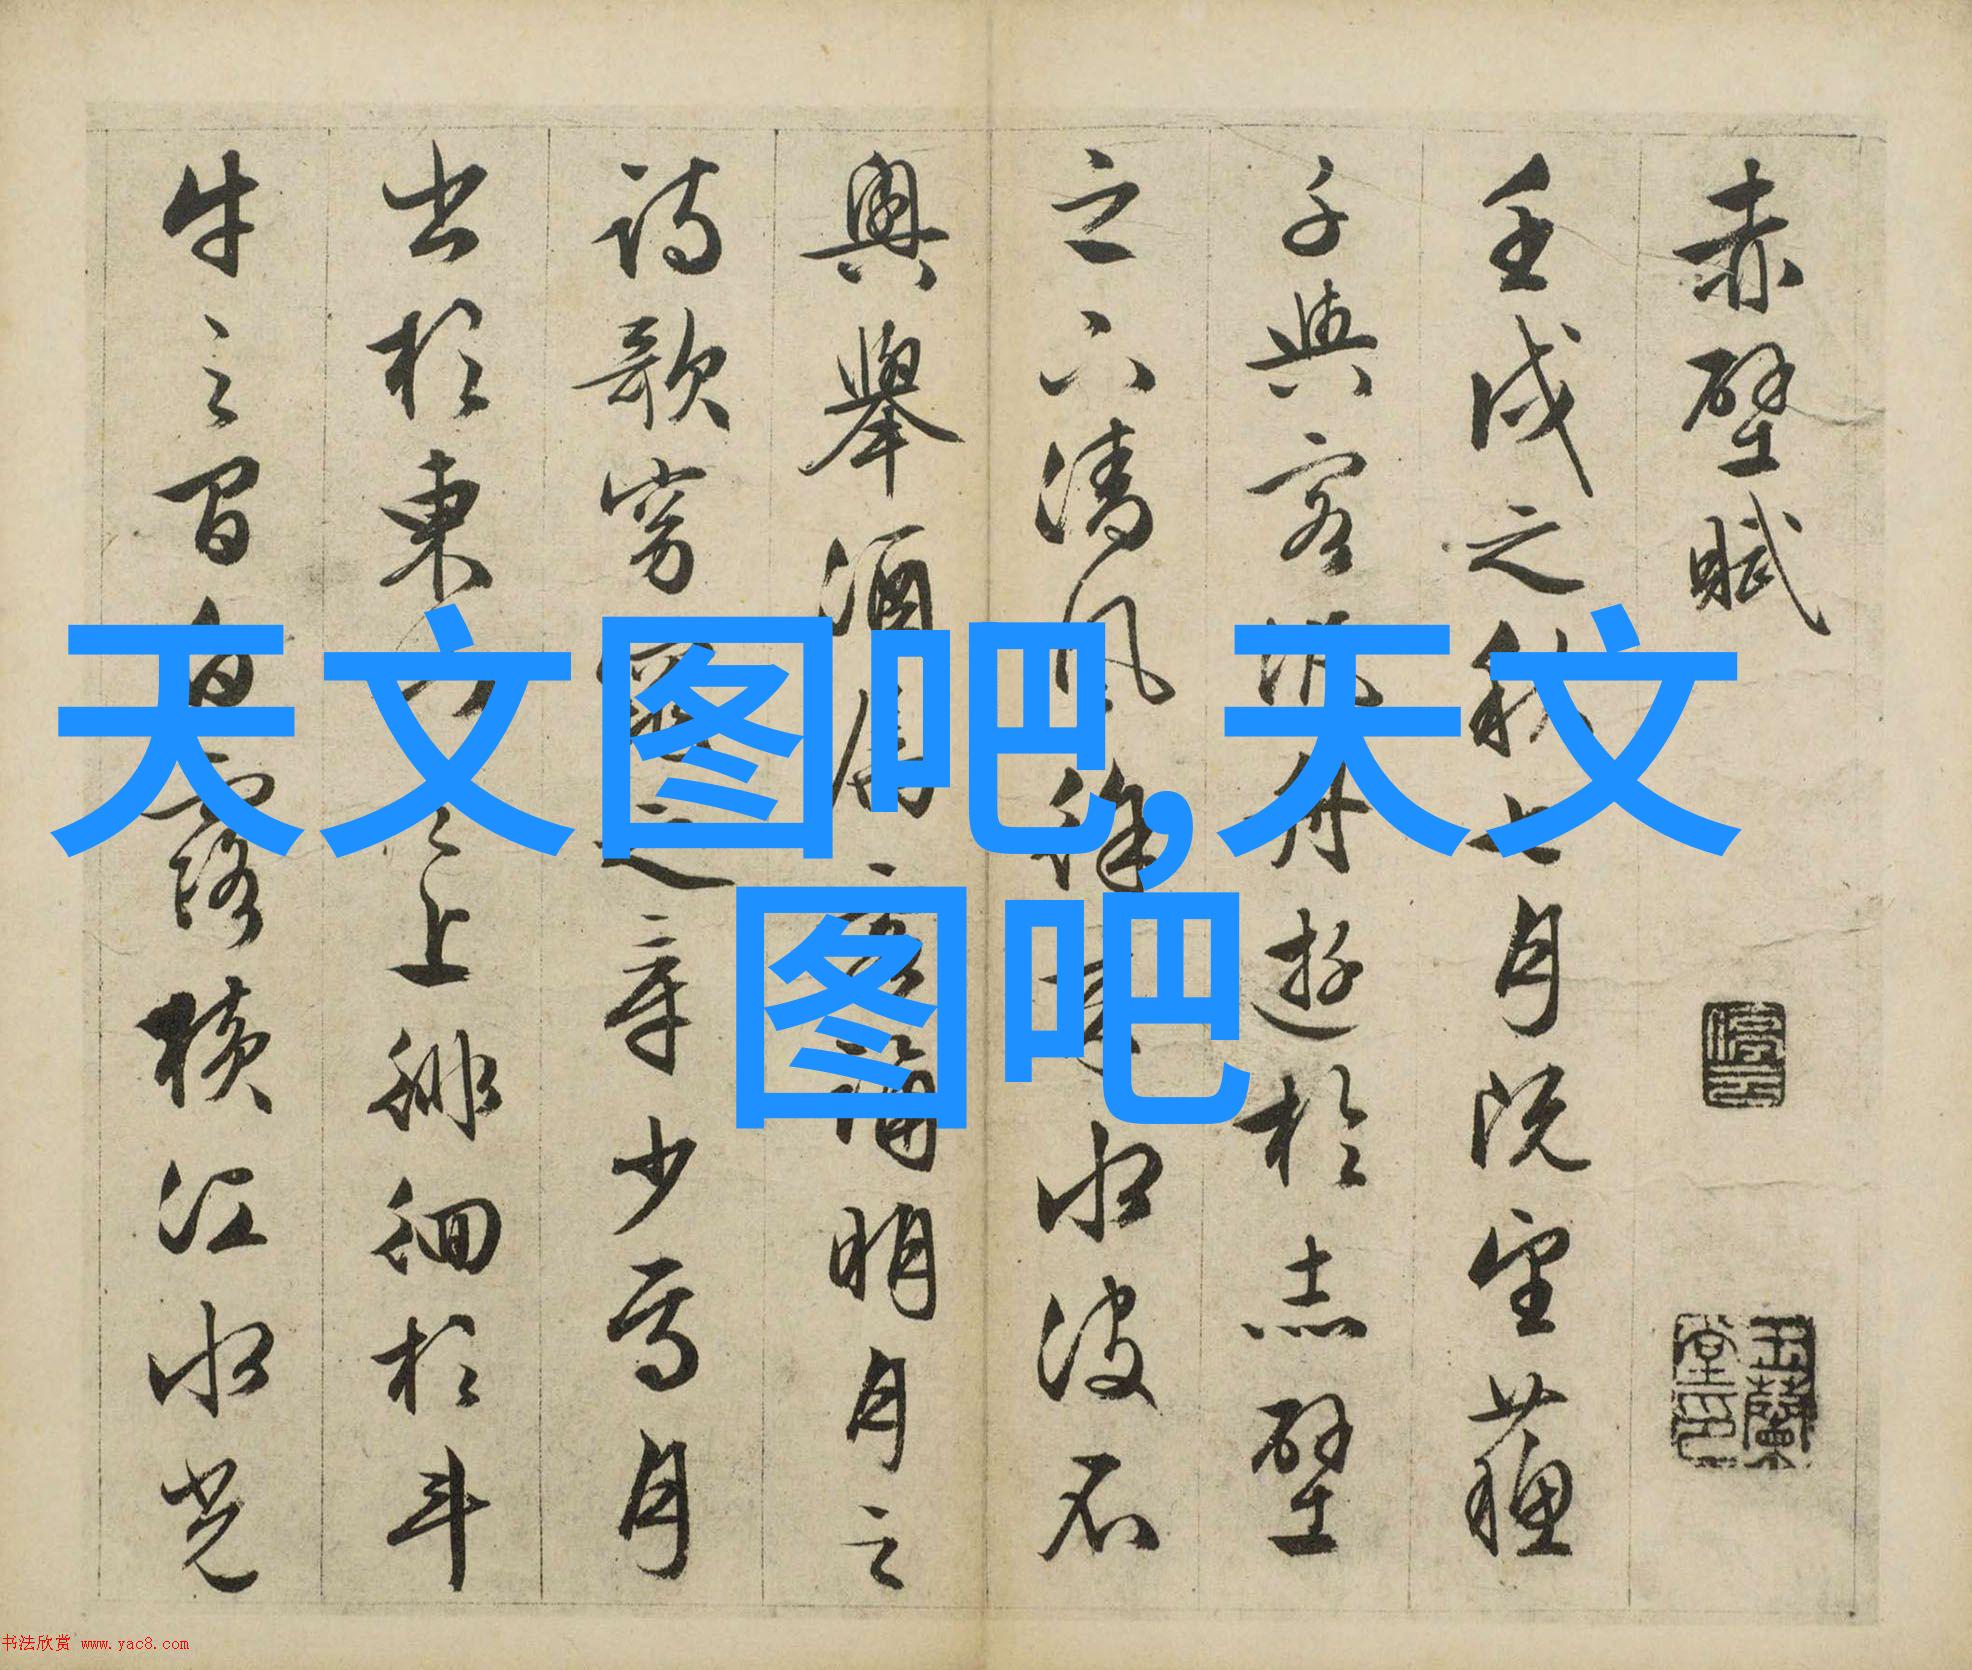 赤壁賦
壬戌之秋七月既望蘓
子與客泛舟遊於赤壁
之下清風徐来水波不
興舉酒屬客誦明月之
詩歌窈窕之章少焉月
出於東山之上徘徊於斗
牛之間白露横江水光
停雲
玉蘭堂印
天文图吧,天文
图吧
书法欣赏 www.yac8.com